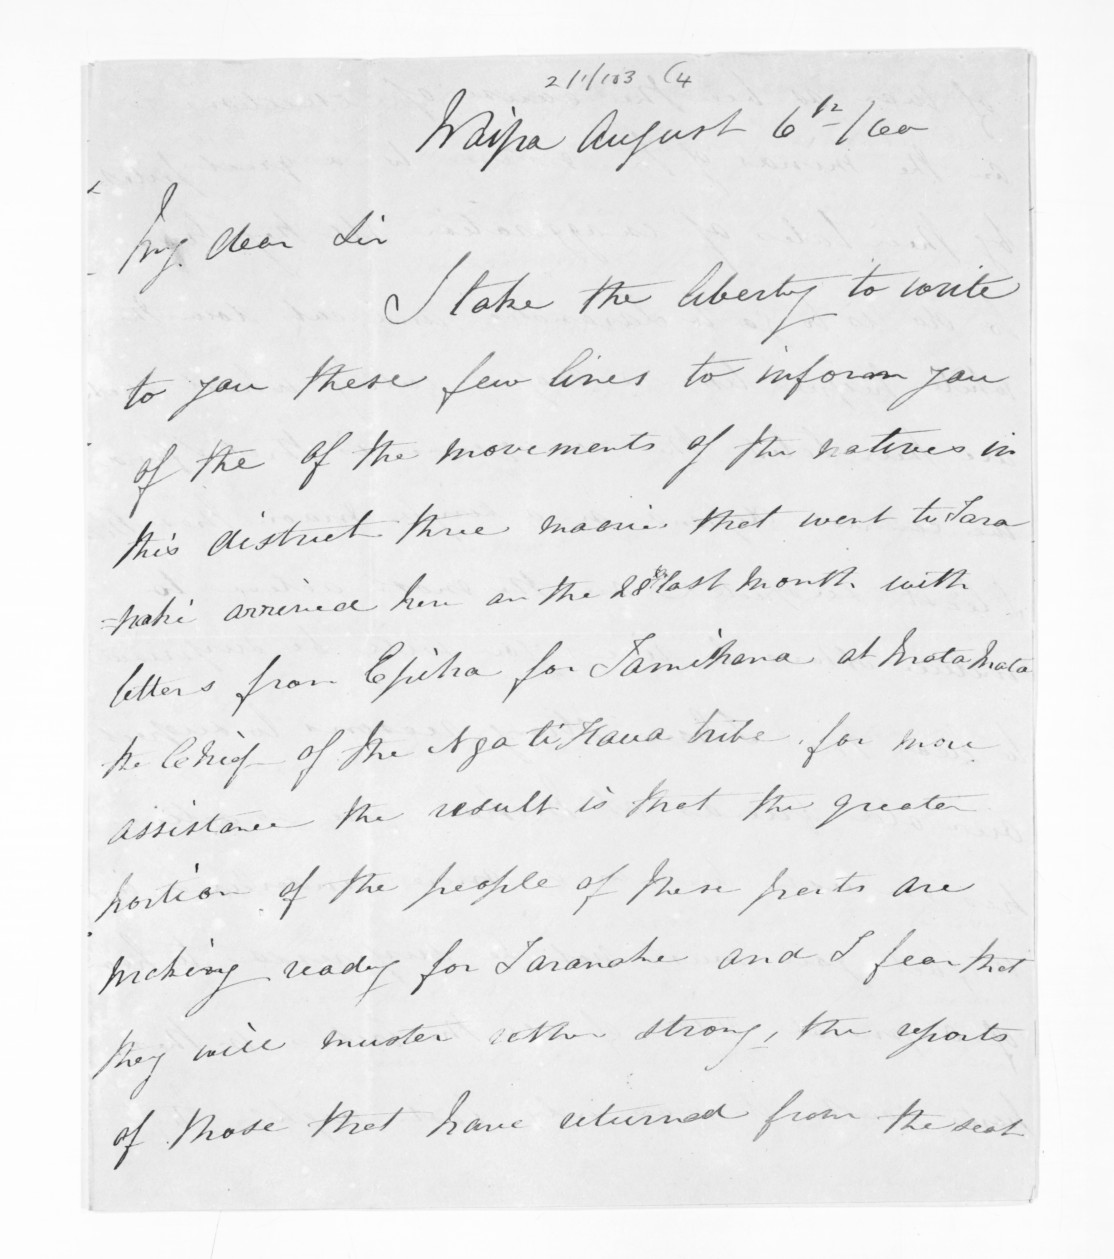 2/1/103 (4
Waipa August 6th/60
My dear Sir
I take the liberty to write
to you these few lines to inform you
of the of the movements of the natives in
this district three maorie that went to Tara
=naki arrived here on the 28th last month with
letters from Epiha for Tamihana at Mata Mata
the Chief of the Ngati Haua tribe, for more
assistance the result is that the greater
portion of the people of these parts are
making ready for Taranake and I fear that
they will muster rather strong, the reports
of those that have returned from the seat